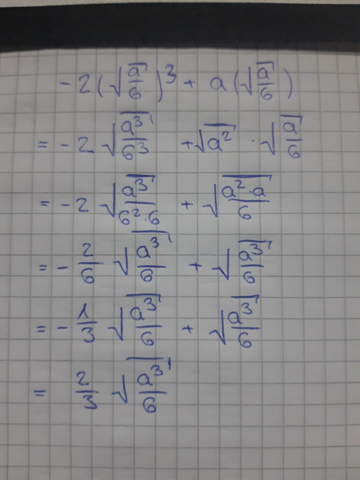 -2(√(a/6))³ + a(√(a/6))
= -2 √(a³/6³) + √a² · √(a/6)
= -2 √(a³/(6²·6)) + √((a²·a)/6)
= -2/6 √(a³/6) + √(a³/6)
= -1/3 √(a³/6) + √(a³/6)
= 2/3 √(a³/6)